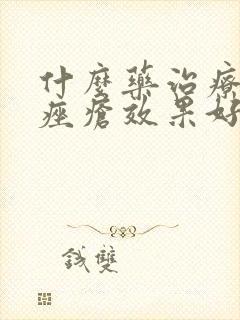 什麼藥治療
痤瘡效果好
钱雙